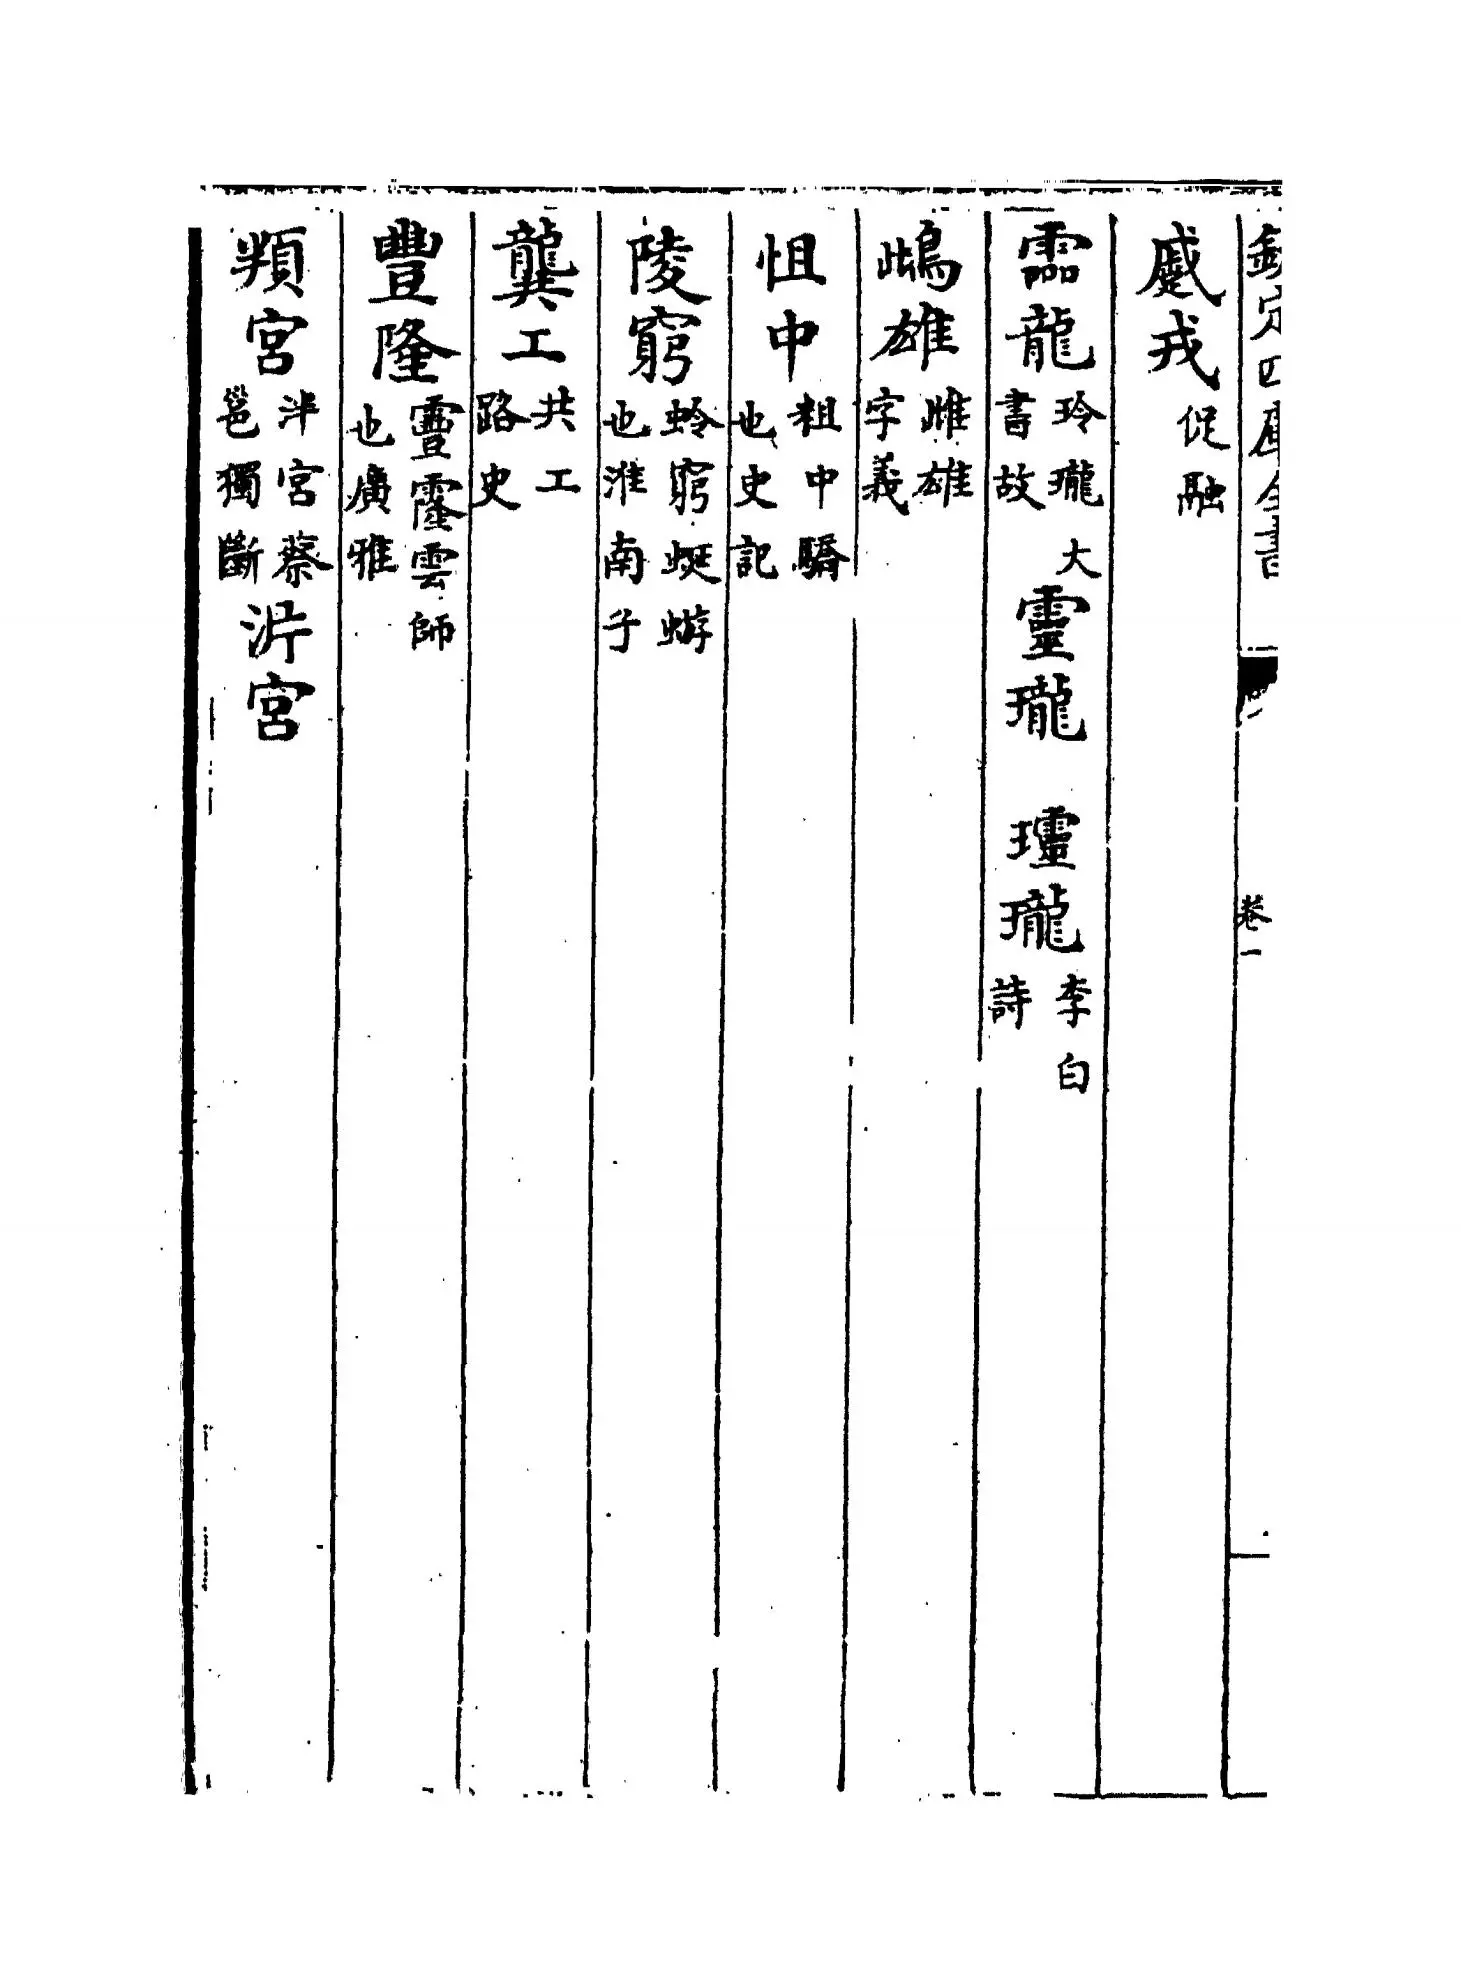 欽定四庫全書 卷一
蹙戎促融
霝龍玲瓏大書故 靈瓏 𤫩瓏李白詩
鴜雄雌雄字義
怚中粗中驕也史記
陵窮蛉窮蜓蝣也淮南子
龔工共工路史
豐隆靊霳雲師也廣雅
頖宮泮宮蔡邕獨斷沜宮